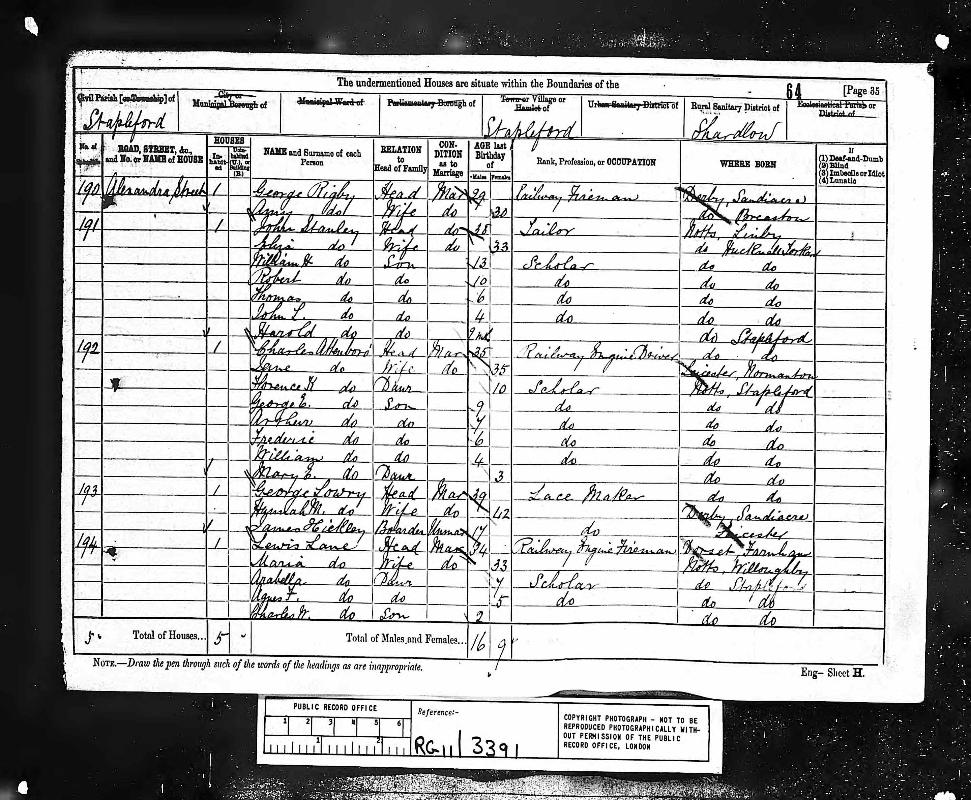 The undermentioned Houses are situate within the Boundaries of the
64 [Page 35
Civil Parish [or Township] of City or Municipal Borough of Municipal Ward of Parliamentary Borough of Town or Village or Hamlet of Urban Sanitary District of Rural Sanitary District of Ecclesiastical Parish or District of
Stapleford Stapleford Shardlow
No. of Schedule ROAD, STREET, &c., and No. or NAME of HOUSE HOUSES Inhabited Uninhabited (U.), or Building (B.) NAME and Surname of each Person RELATION to Head of Family CONDITION as to Marriage AGE last Birthday of Males Females Rank, Profession, or OCCUPATION WHERE BORN If (1) Deaf-and-Dumb (2) Blind (3) Imbecile or Idiot (4) Lunatic
190 Alexandra Street 1 George Rigby Head Mar 29 Railway Fireman Derby, Sandiacre
do Wife do 30 do Breaston
191 1 John Stanley Head do 38 Tailor Notts, Linby
do Wife do 33 do Hucknall Torkard
William H do Son 13 Scholar do do
Robert do do 10 do do do
Thomas do do 6 do do do
John L. do do 4 do do do
Harold do do 9 mo do Stapleford
192 1 Charles Attenboro' Head Mar 35 Railway Engine Driver do do
Jane do Wife do 35 Leicester, Normanton
Florence K do Daur 10 Scholar Notts, Stapleford
George E. do Son 9 do do do
Arthur do do 7 do do do
Frederic do do 6 do do do
William do do 4 do do do
Mary E. do Daur 3 do do
193 1 George Lowry Head Mar 39 Lace Maker do do
Hannah M. do Wife do 42 Derby, Sandiacre
James Hickley Boarder Unmar 17 do Leicester
194 1 Lewis Lane Head Mar 34 Railway Engine Fireman Dorset, Farnham
Maria do Wife do 33 Notts, Willoughby
Arabella do Daur 7 Scholar do Stapleford
Agnes F. do do 5 do do do
Charles W. do Son 2 do do
5 Total of Houses... 5 - Total of Males and Females... 16 9
NOTE.—Draw the pen through such of the words of the headings as are inappropriate.
Eng- Sheet H.
PUBLIC RECORD OFFICE
1 2 3 4 5 6
1 2
Reference:-
RG11/3391
COPYRIGHT PHOTOGRAPH - NOT TO BE
REPRODUCED PHOTOGRAPHICALLY WITH-
OUT PERMISSION OF THE PUBLIC
RECORD OFFICE, LONDON